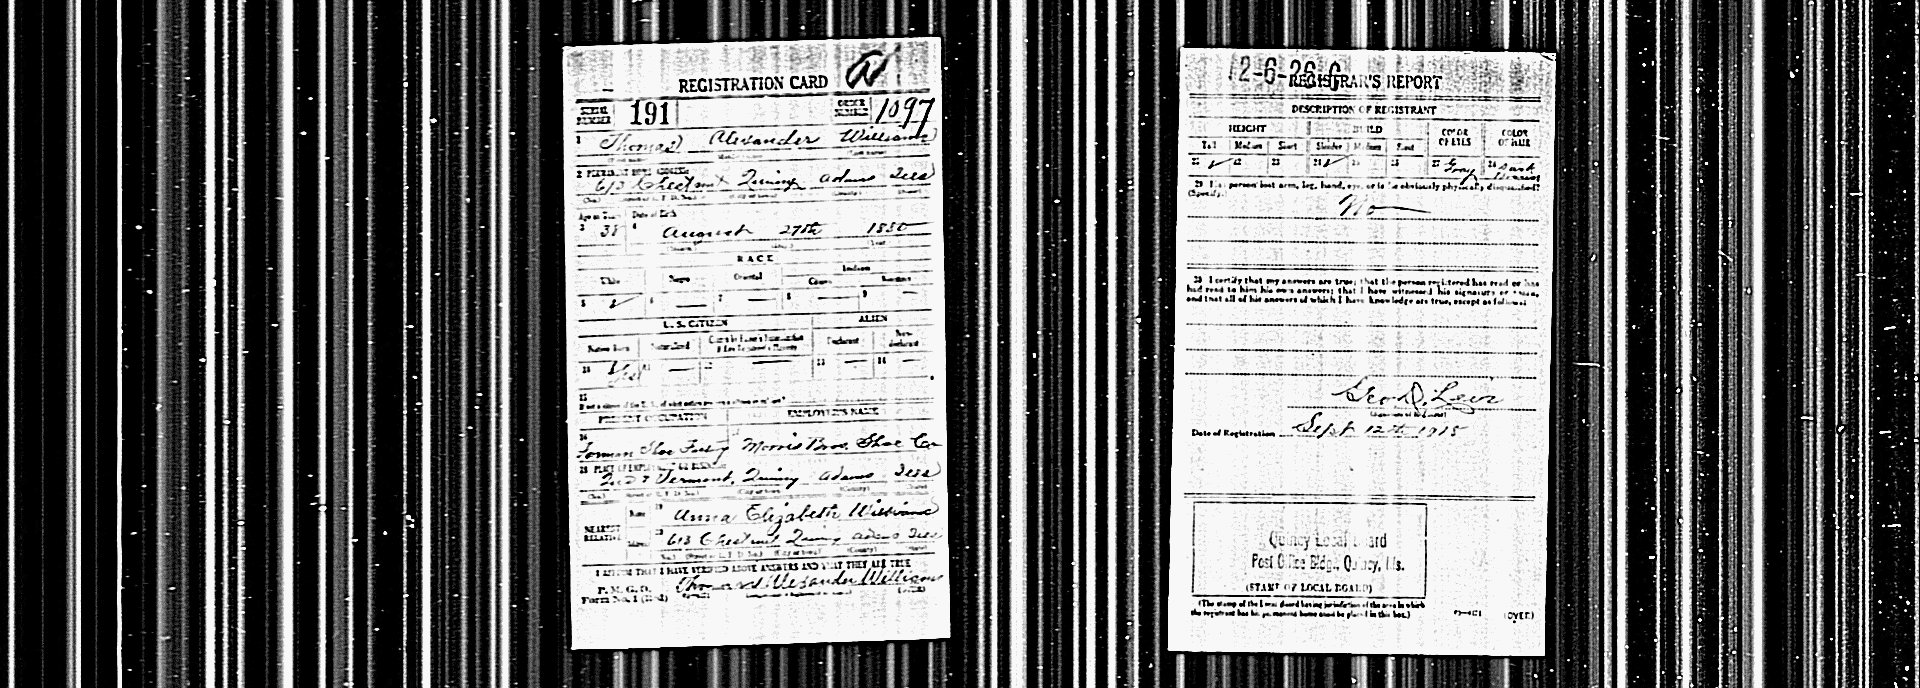 REGISTRATION CARD
SERIAL NUMBER 191 ORDER NUMBER 1097
1 Thomas Alexander Williams
2 PERMANENT HOME ADDRESS
613 Chestnut Quincy Adams Ills
Age in Years Date of Birth
3 38 4 August 27th 1880
RACE
White Negro Oriental Indian
Citizen
5 6 7 8 9
U. S. CITIZEN ALIEN
Native Born Naturalized Citizen by Father's Naturalization Declarant Non-declarant
10 Yes 11 12 13 14
15
PRESENT OCCUPATION EMPLOYER'S NAME
16
Foreman Shoe Morris Bros. Shoe Co
18 PLACE OF EMPLOYMENT OR BUSINESS
Vermont, Quincy Adams Ills
(No.) (City or town) (County) (State)
NEAREST RELATIVE
Name 19 Anna Elizabeth Williams
Address 20 613 Chestnut Quincy Adams Ills
(No.) (City or town) (County) (State)
I AFFIRM THAT I HAVE VERIFIED ABOVE ANSWERS AND THAT THEY ARE TRUE
P. M. G. O.
Form No. 1 (Red)
Thomas Alexander Williams
12-6-26-C
REGISTRAR'S REPORT
DESCRIPTION OF REGISTRANT
HEIGHT BUILD COLOR OF EYES COLOR OF HAIR
Tall Medium Short Slender Medium Stout
21 22 23 24 25 26 27 Gray 28 Dark Brown
29 Has person lost arm, leg, hand, eye, or is he obviously physically disqualified?
(Specify.)
No
30 I certify that my answers are true; that the person registered has read or has
had read to him his own answers; that I have witnessed his signature or mark,
and that all of his answers of which I have knowledge are true, except as follows:
Geo. D. Levi
(Signature of Registrar)
Date of Registration Sept 12th 1918
Quincy Local Board
Post Office Bldg., Quincy, Ills.
(STAMP OF LOCAL BOARD)
(The stamp of the Local Board having jurisdiction of the area in which
the registrant has his permanent home must be placed in this box.)
(OVER)